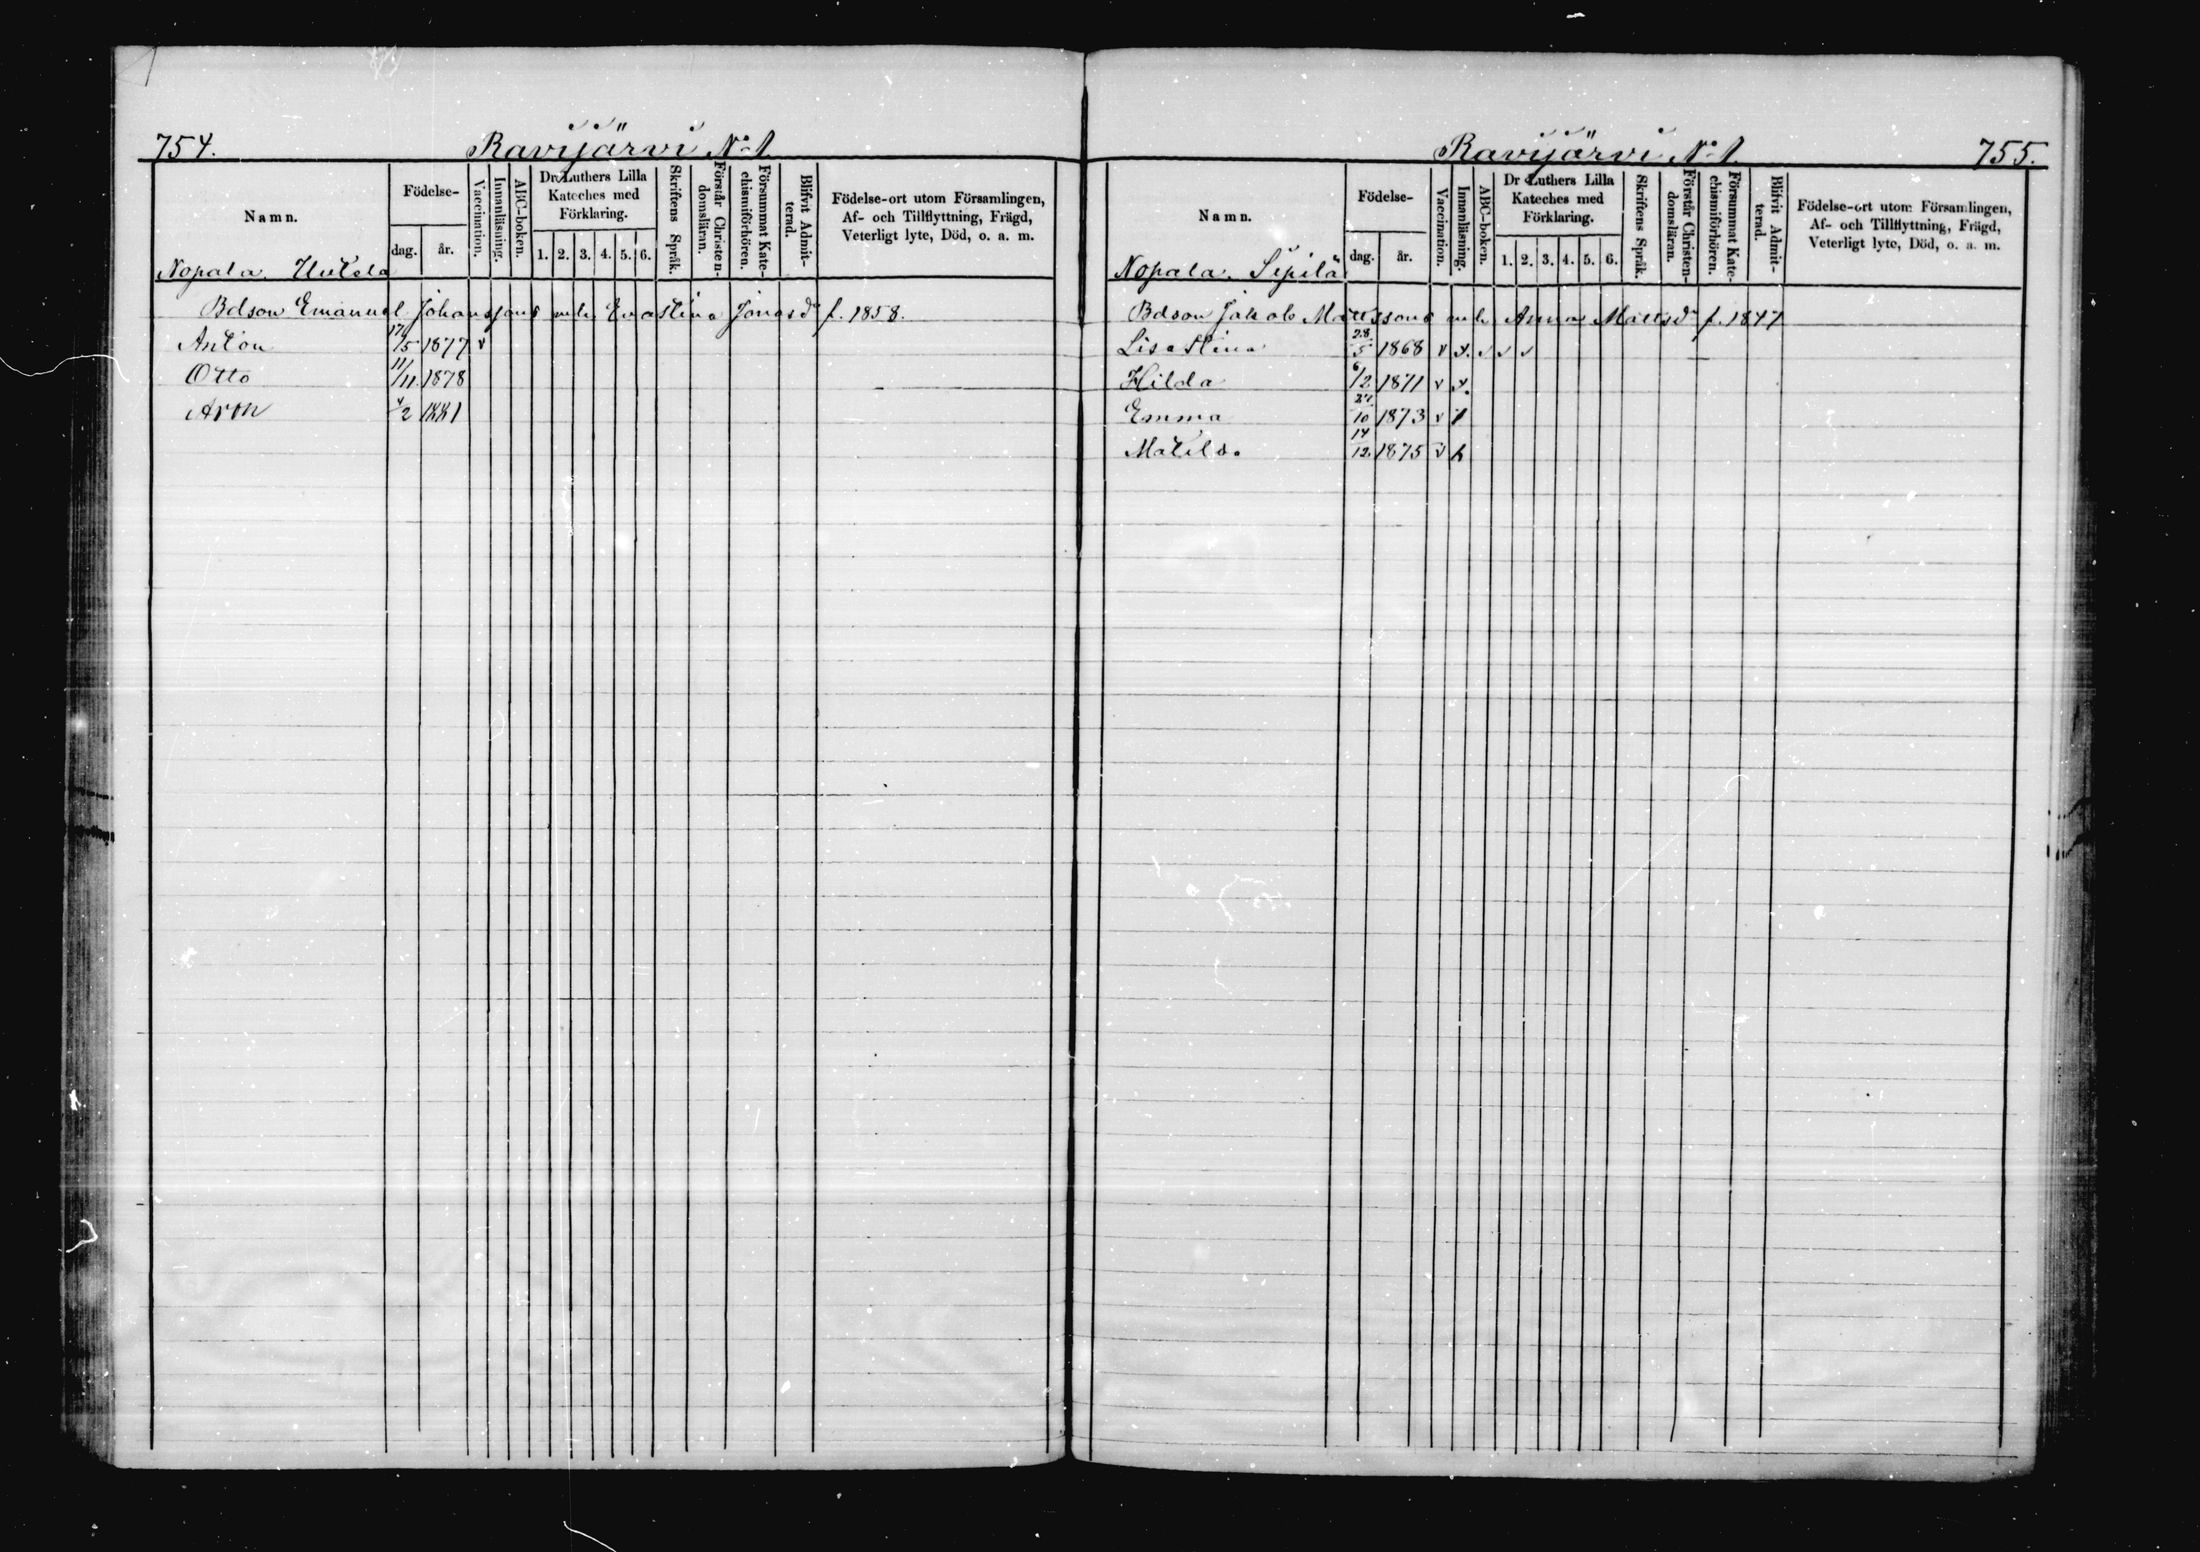 754.
Ravijärvi No 1.
Namn.
Födelse-
dag.
år.
Vaccination.
Innanläsning.
ABC-boken.
Dr Luthers Lilla
Kateches med
Förklaring.
1. 2. 3. 4. 5. 6.
Skriftens Språk.
Förstår Christen-
domsläran.
Försummat Kate-
chismiförhören.
Blifvit Admit-
terad.
Födelse-ort utom Församlingen,
Af- och Tillflyttning, Frägd,
Veterligt lyte, Död, o. a. m.
Nopala
Bdson Emanuel Johanssons och Evastina Jonasdr f. 1858.
Anton 17/5 1877 v
Otto 11/11 1878
Aron 4/2 1881
Ravijärvi No 1.
755.
Namn.
Födelse-
dag.
år.
Vaccination.
Innanläsning.
ABC-boken.
Dr Luthers Lilla
Kateches med
Förklaring.
1. 2. 3. 4. 5. 6.
Skriftens Språk.
Förstår Christen-
domsläran.
Försummat Kate-
chismiförhören.
Blifvit Admit-
terad.
Födelse-ort utom Församlingen,
Af- och Tillflyttning, Frägd,
Veterligt lyte, Död, o. a. m.
Nopala. Sipilä
Bdson Jakob Mattssons och Anna Mattsdr f. 1847
Lisa Stina 28/5 1868 v x. v v v
Hilda 6/2 1871 v x.
Emma 27/10 1873 v
Matilda 14/12 1875 v